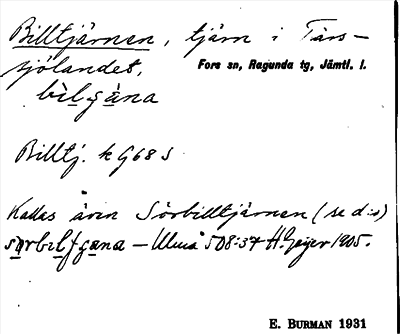 Billtjärnen, tjärn i Tärs-
sjölandet, Fors sn, Ragunda tg, Jämtl. l.
Billtj. k G68 S
Kallas även Sörbilltjärnen (se d:o)
Umeå 508:37 H. Geijer 1905.
E. BURMAN 1931